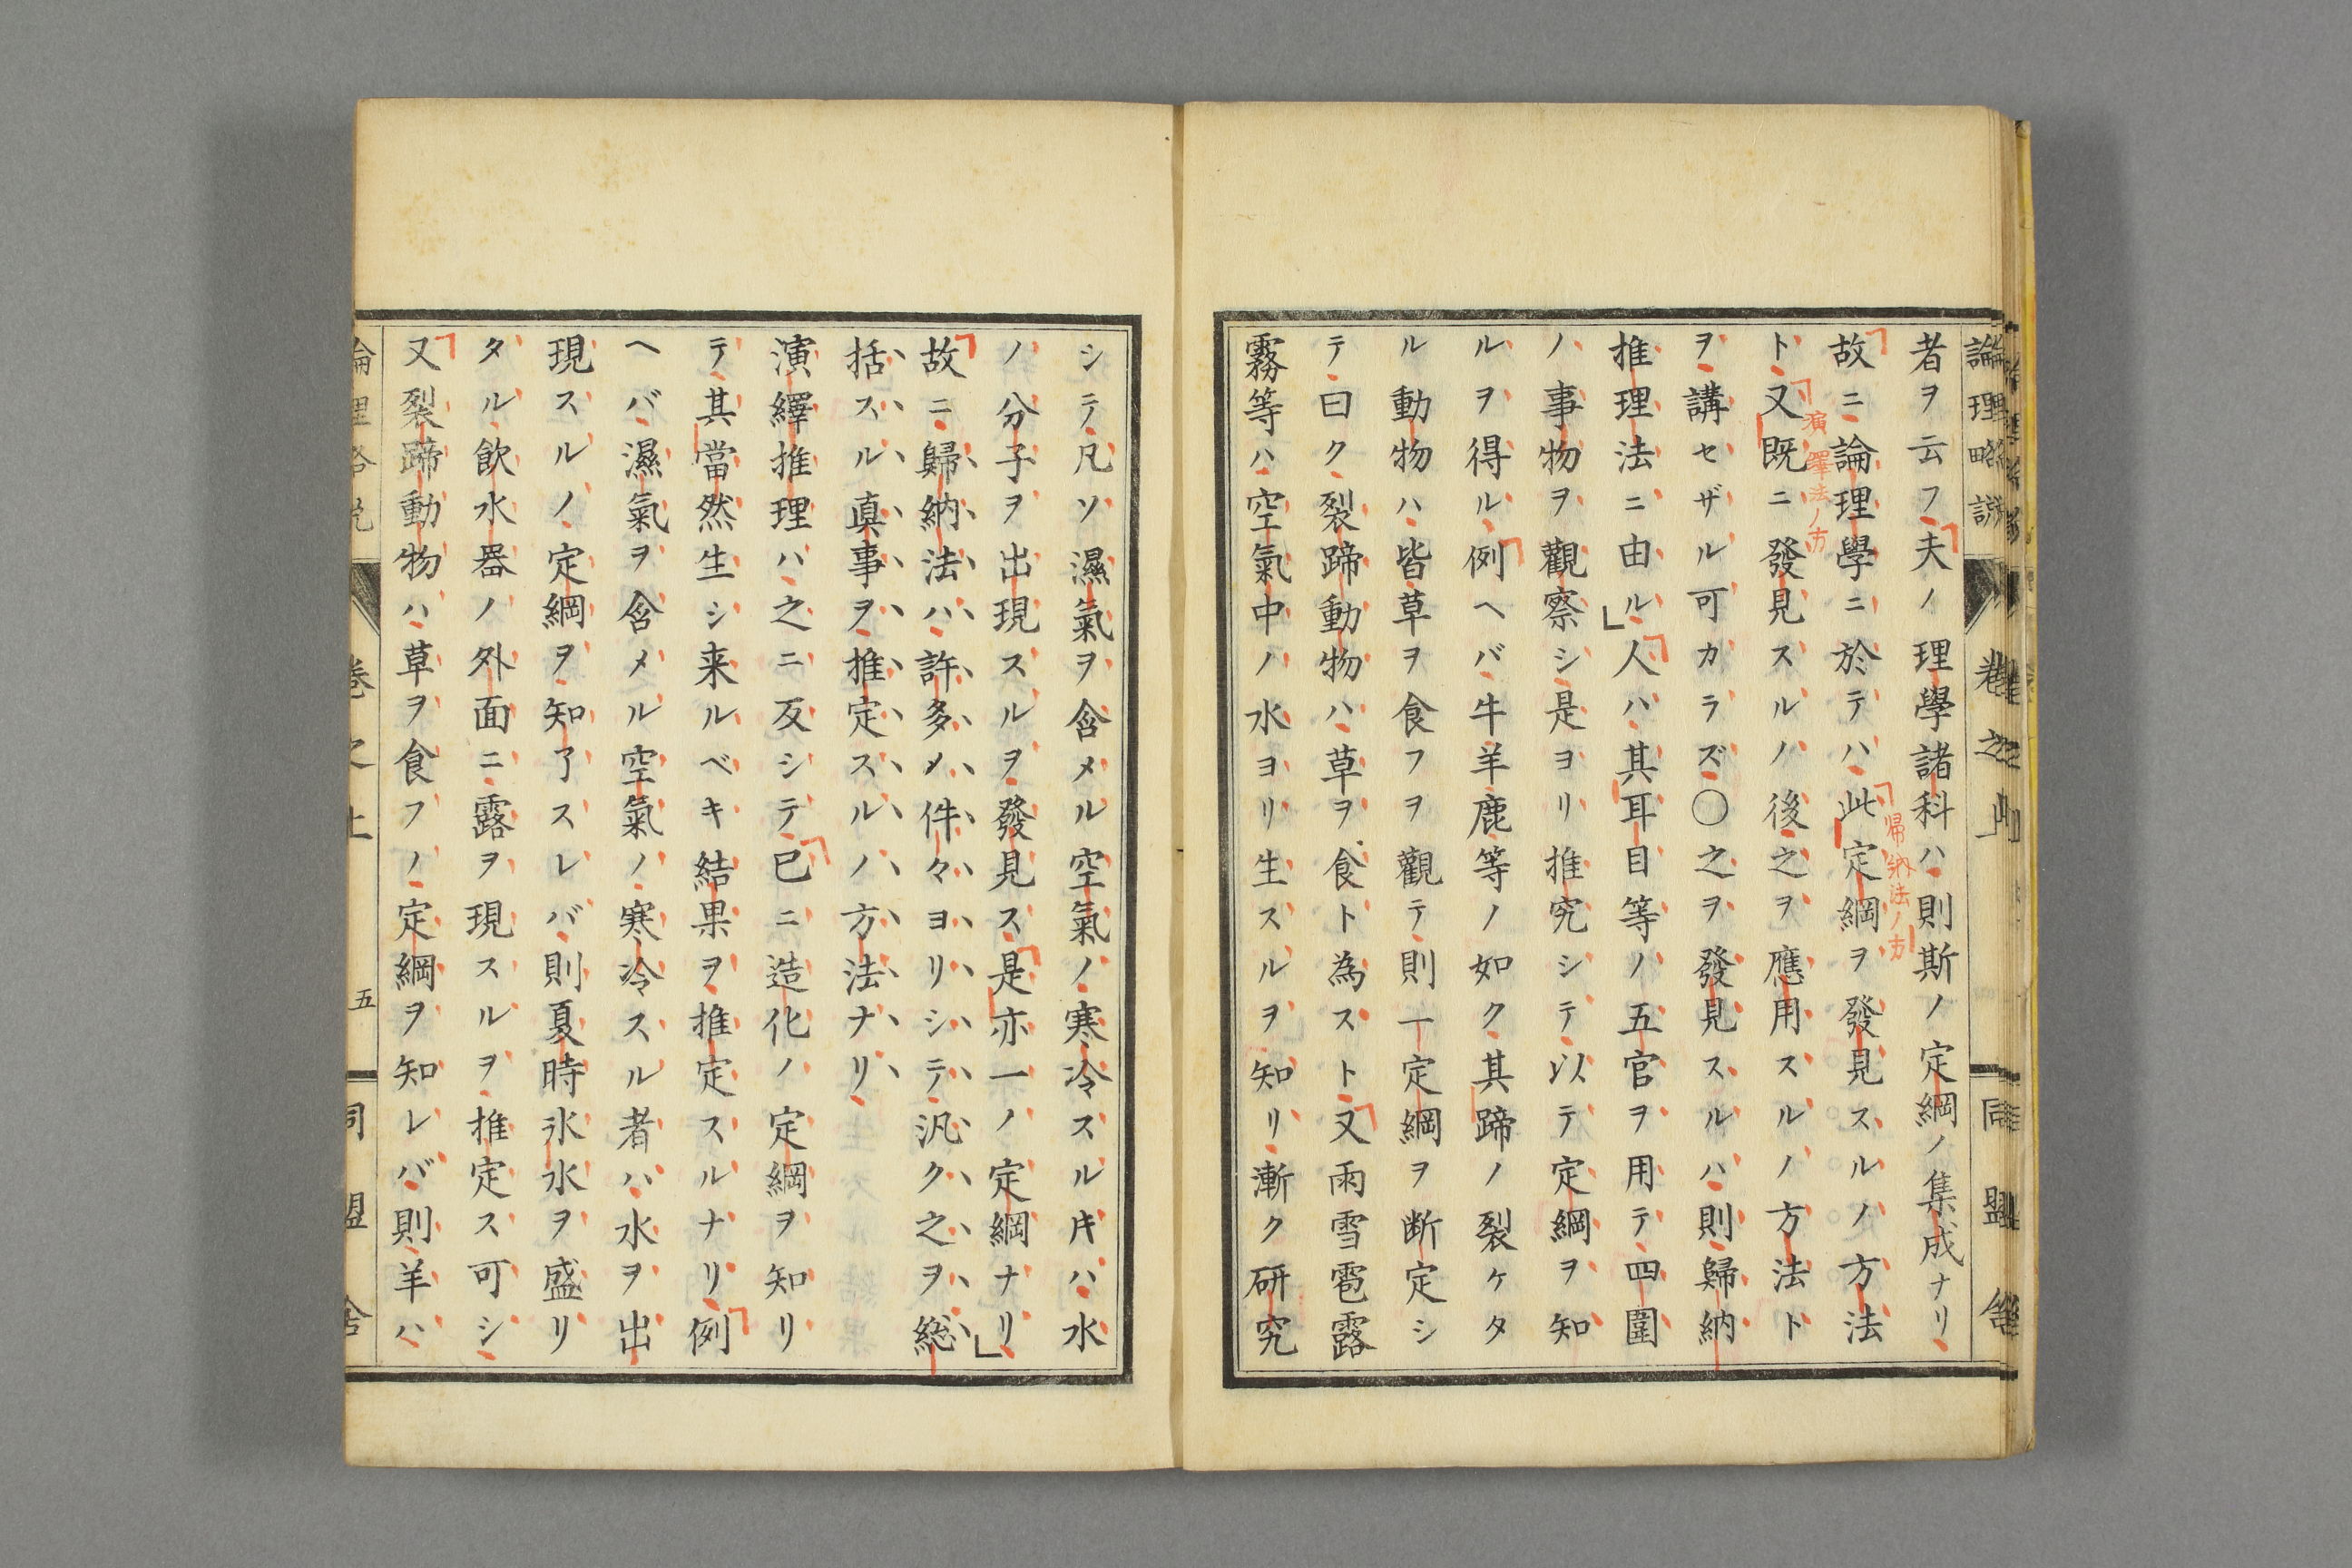 論理略說 卷之上 同盟舍
者ヲ云フ夫ノ理學諸科ハ則斯ノ定綱ノ集成ナリ
帰納法ノ方
故ニ論理學ニ於テハ此定綱ヲ發見スルノ方法
演繹法ノ方
ト又既ニ發見スルノ後之ヲ應用スルノ方法ト
ヲ講セザル可カラズ〇之ヲ發見スルハ則歸納
推理法ニ由ル人ハ其耳目等ノ五官ヲ用テ四圍
ノ事物ヲ觀察シ是ヨリ推究シテ以テ定綱ヲ知
ルヲ得ル例ヘバ牛羊鹿等ノ如ク其蹄ノ裂ケタ
ル動物ハ皆草ヲ食フヲ觀テ則一定綱ヲ断定シ
テ曰ク裂蹄動物ハ草ヲ食ト為スト又雨雪雹露
霧等ハ空氣中ノ水ヨリ生スルヲ知リ漸ク研究
シテ凡ソ濕氣ヲ含メル空氣ノ寒冷スル𪜈ハ水
ノ分子ヲ出現スルヲ發見ス是亦一ノ定綱ナリ
故ニ歸納法ハ許多ノ件々ヨリシテ汎ク之ヲ総
括スル眞事ヲ推定スルノ方法ナリ
演繹推理ハ之ニ反シテ已ニ造化ノ定綱ヲ知リ
テ其當然生シ来ルベキ結果ヲ推定スルナリ例
ヘバ濕氣ヲ含メル空氣ノ寒冷スル者ハ水ヲ出
現スルノ定綱ヲ知了スレバ則夏時氷水ヲ盛リ
タル飲水器ノ外面ニ露ヲ現スルヲ推定ス可シ
又裂蹄動物ハ草ヲ食フノ定綱ヲ知レバ則羊ハ
論理略說 卷之上 五 同盟舍